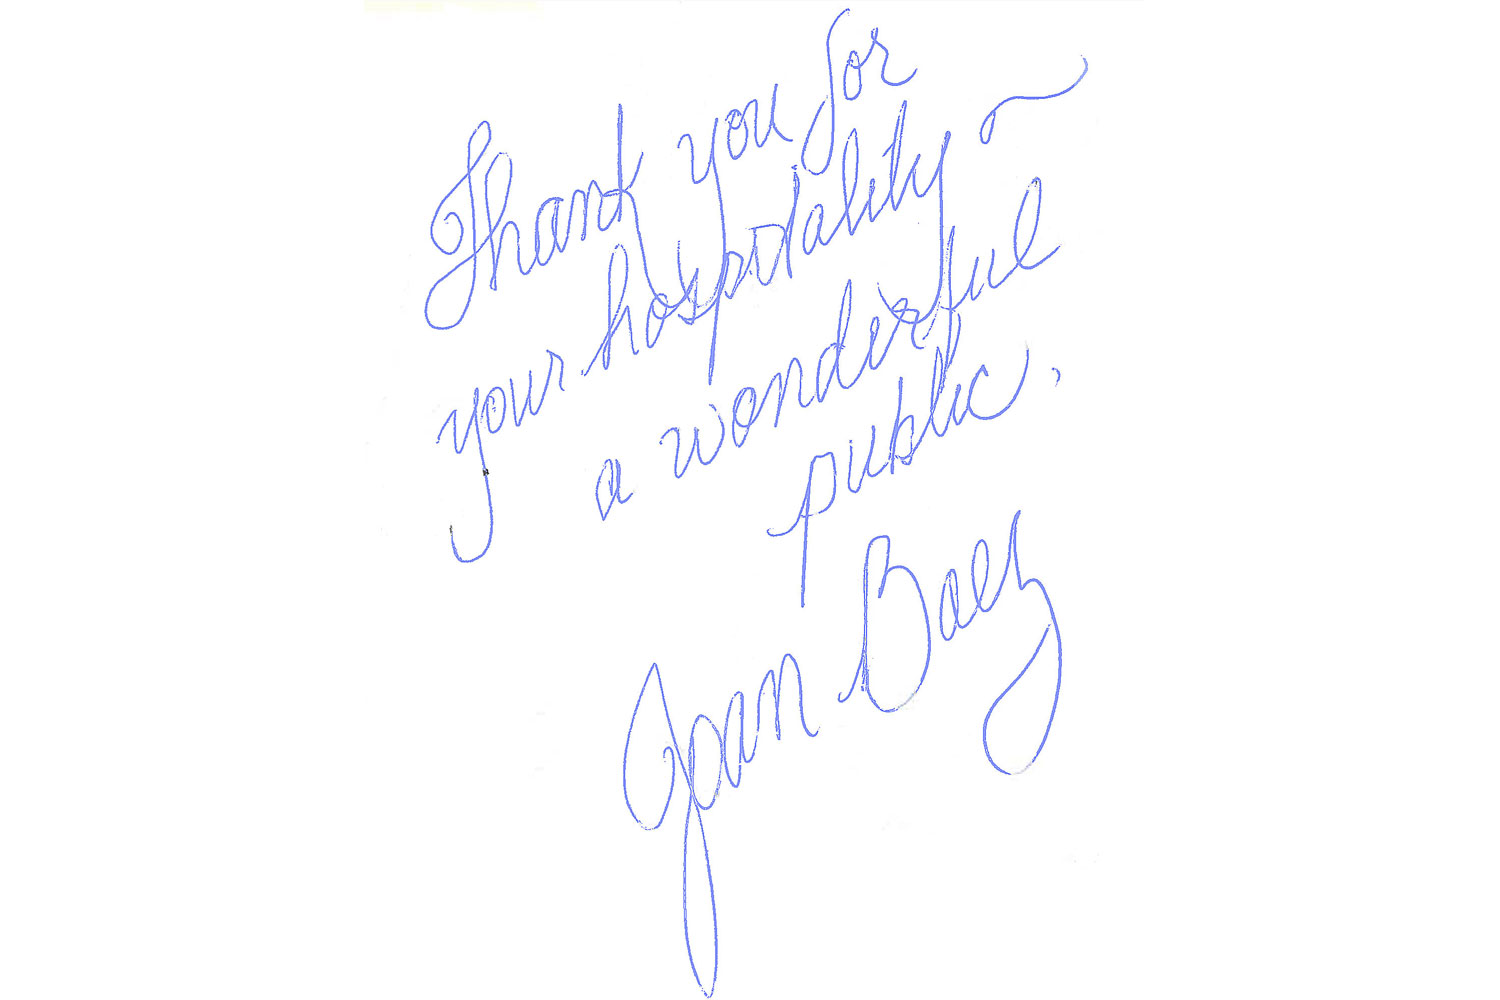 Thank you for
your hospitality ~
a wonderful
public.
Joan Baez